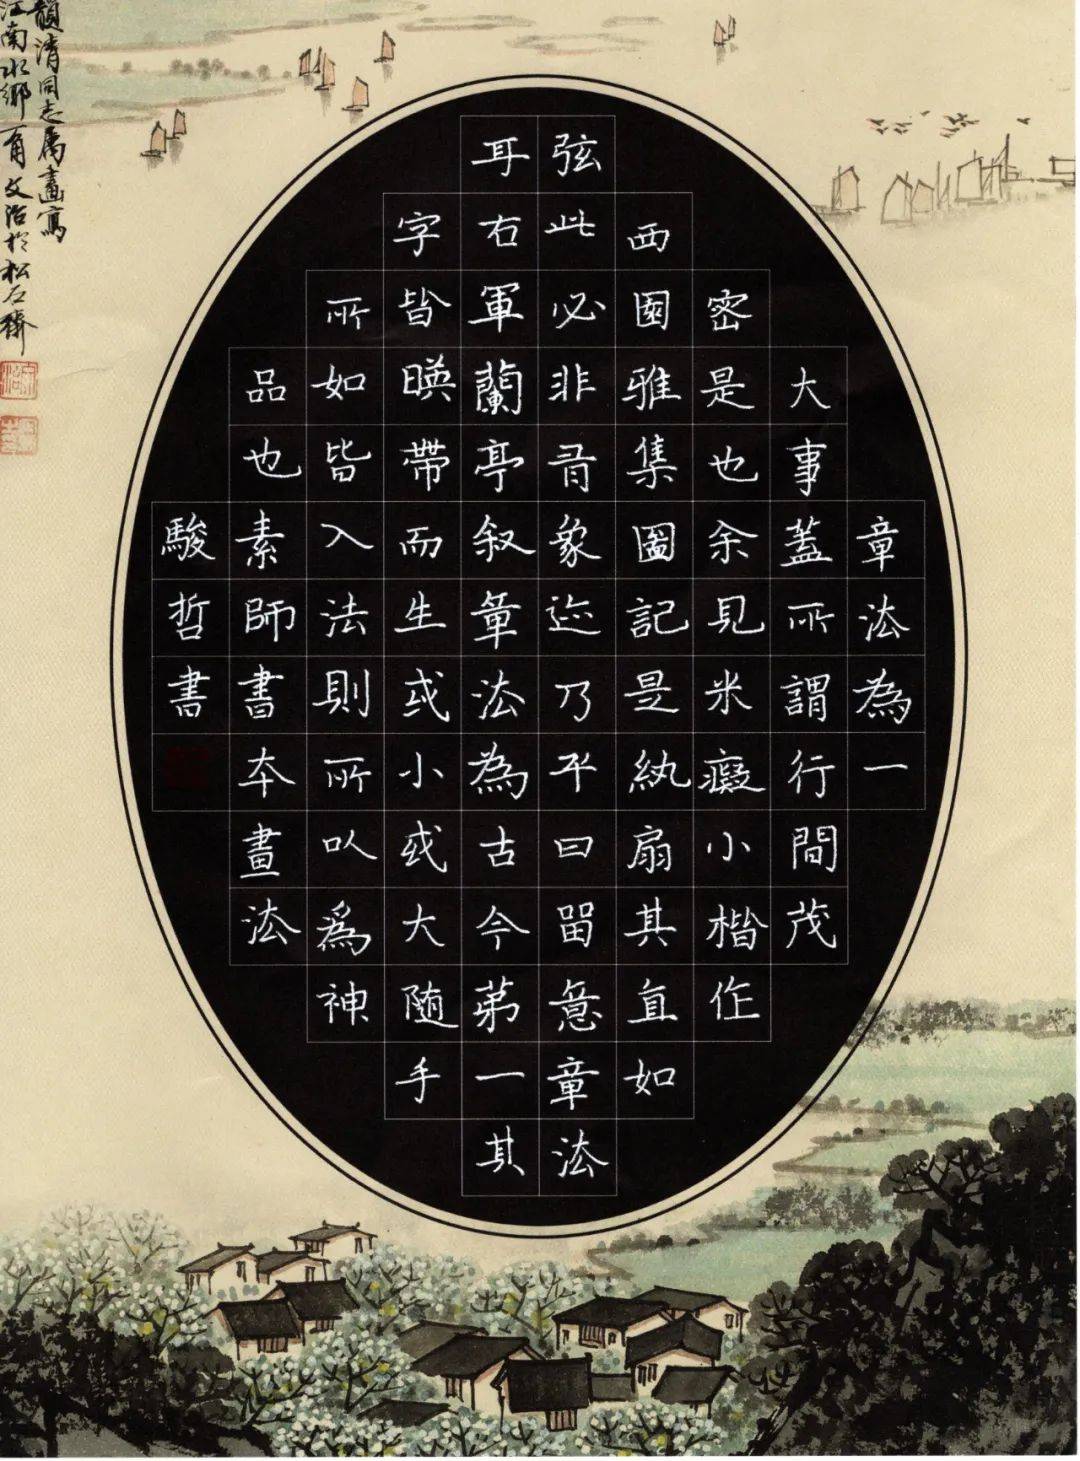 章法為一
大事蓋所謂行間茂
密是也余見米癡小楷作
西園雅集圖記是紈扇其直如
弦此必非有象迹乃平日留意章法
耳右軍蘭亭叙章法為古今第一其
字皆暎帶而生或小或大隨手
所如皆入法則所以為神
品也素師書本畫法
駿哲書
清同志屬畫寫
江南水鄉一角文治於松石齋